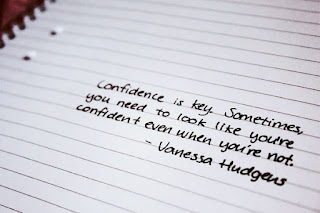 Confidence is key. Sometimes,
you need to look like you're
confident even when you're not.
- Vanessa Hudgens